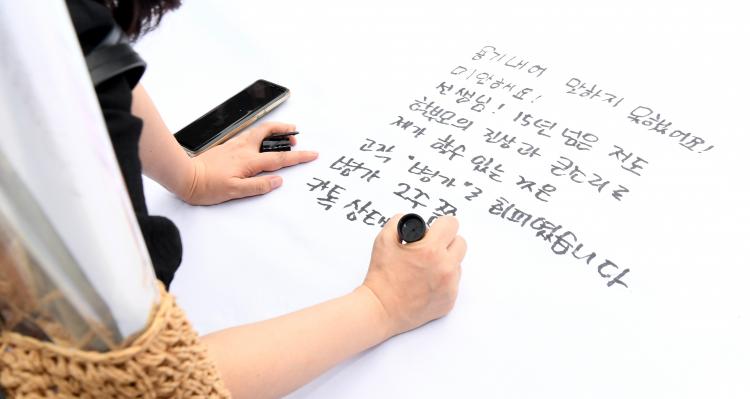 용기내어 말하지 못했어요!
미안해요!
선생님! 15년 넘은 저도
학부모의 진상과 큰소리로
제가 할수 있는 것은
고작 "병가"로 회피였습니다
병가 2주
카톡 상태